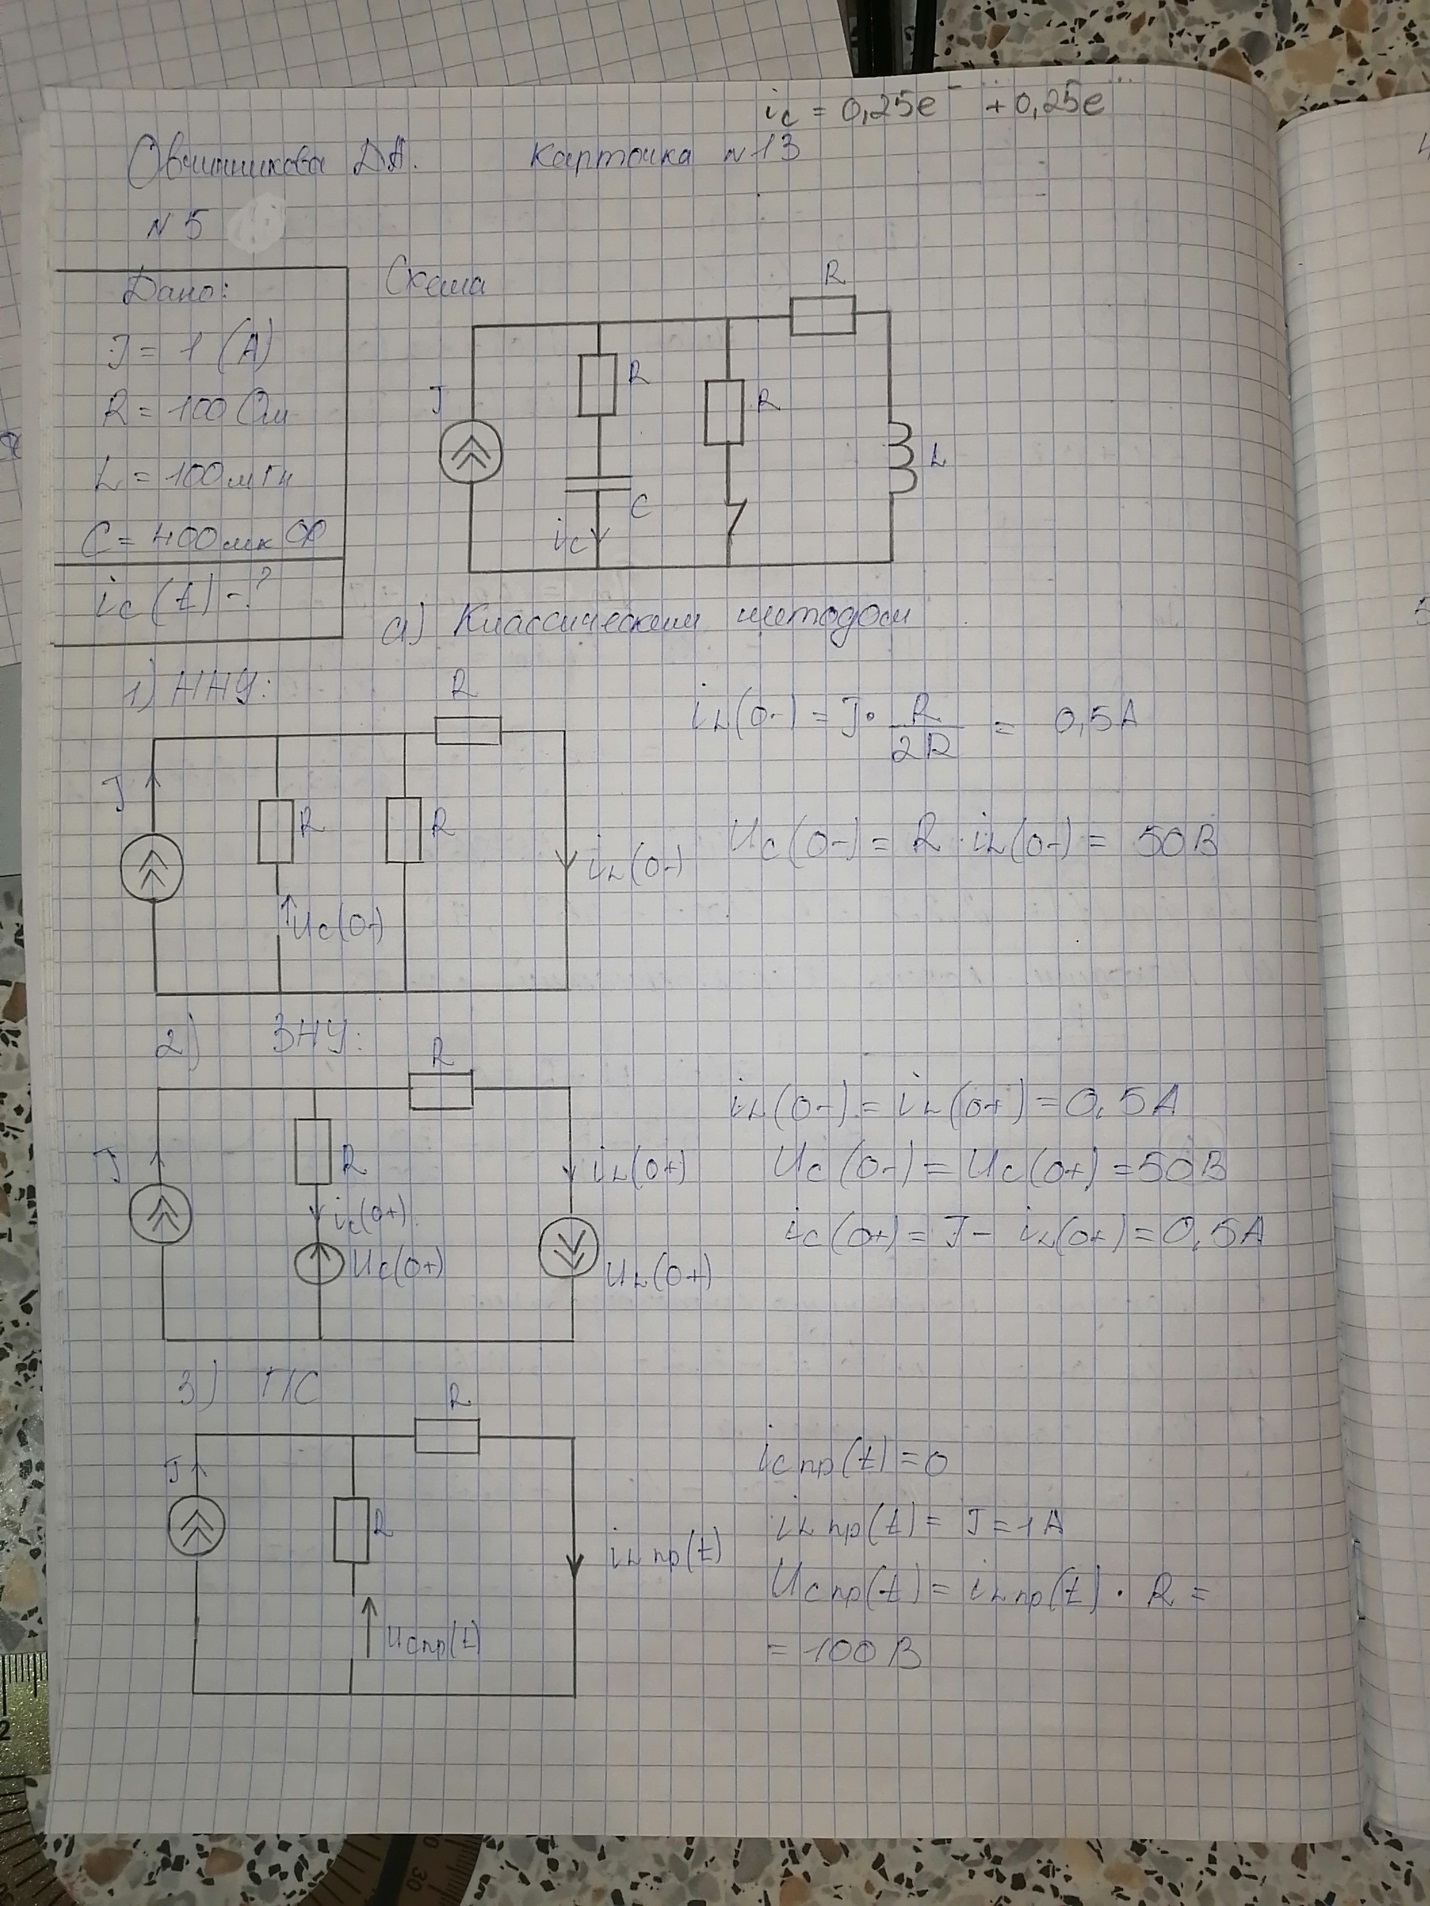 ic = 0,25e⁻¨ + 0,25e¨
Овчинникова Д.А. Карточка №13
№5
Дано:
J = 1 (А)
R = 100 Ом
L = 100 мГн
C = 400 мкФ
ic(t) - ?
Схема
R
J
R
R
L
C
ic
а) Классическим методом
1) ННУ:
R
J
R
R
iL(0-)
Uc(0-)
iL(0-) = J · R/2R = 0,5А
Uc(0-) = R · iL(0-) = 50В
2) ЗНУ:
R
J
R
ic(0+)
Uc(0+)
iL(0+)
UL(0+)
iL(0-) = iL(0+) = 0,5А
Uc(0-) = Uc(0+) = 50В
ic(0+) = J - iL(0+) = 0,5А
3) ПС
R
J
R
iL пр(t)
Uc пр(t)
ic пр(t) = 0
iL пр(t) = J = 1А
Uc пр(t) = iL пр(t) · R =
= 100В